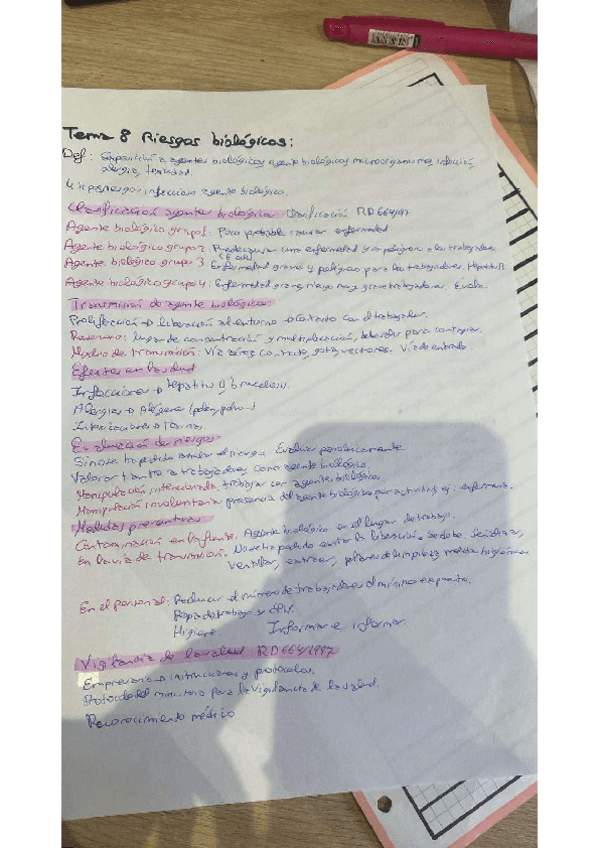 Tema 8 Riesgos biológicos:
Def: Exposición a agentes biológicos, agente biológicos microorganismos, infección,
alergia, toxicidad.
4 tipos riesgos infeccioso agente biológico.
Clasificación agentes biológico. Clasificación RD 664/97
Agente biológico grupo 1. Poco probable causar enfermedad
Agente biológico grupo 2. una enfermedad y peligro a los trabajadores
Agente biológico grupo 3. Enfermedad grave y peligro para los trabajadores. Hepatitis B
Agente biológico grupo 4: Enfermedad grave riesgo muy grave trabajadores. Evola
Transmisión de agente biológico
Proliferación → liberación al entorno → Contacto con el trabajador.
Reservorio: lugar de concentración y multiplicación, para contagiar.
Medio de transmisión: Vía aérea, contacto, gotas, vectores. Vía de entrada.
Efectos en la salud
Infecciones → Hepatitis B, brucelosis.
Alergias → Alérgeno (polen, polvo...)
Intoxicaciones → Toxinas.
Evaluación de riesgos
Si no se ha podido anular el riesgo. Evaluar periódicamente
Valorar tanto a trabajadores como agente biológico.
Manipulación intencionada, trabajar con agente biológico.
Manipulación involuntaria presencia del agente biológico por actividad ej: enfermero.
Medidas preventivas
Contaminación en la fuente. Agente biológico en el lugar de trabajo.
En la vía de transmisión. No se ha podido evitar la liberación se debe. Señalizar,
Ventilar, extraer, planes de limpieza, medidas higiénicas
En el personal: Reducir el número de trabajadores al mínimo expuesto.
Ropa de trabajo y EPIs.
Higiene Informar e informar.
Vigilancia de la salud RD 664/1997
Empresario → instrucciones y protocolos.
Protocolo del ministerio para la vigilancia de la salud.
Reconocimiento médico